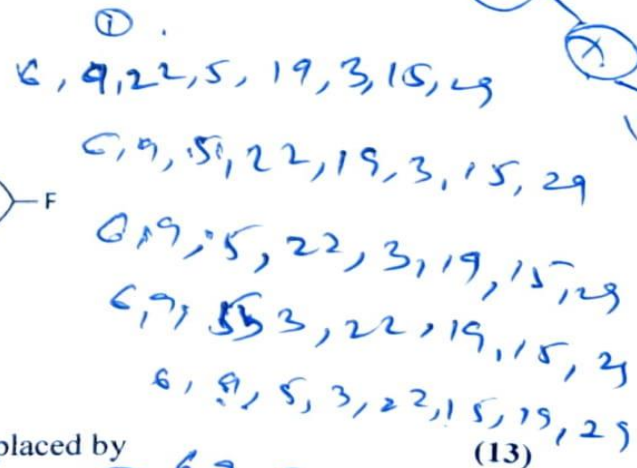 ①
6, 9, 22, 5, 19, 3, 15, 29
6, 9, 5, 22, 19, 3, 15, 29
F
6, 9, 5, 22, 3, 19, 15, 29
6, 9, 3, 22, 19, 15, 29
6, 9, 5, 3, 22, 15, 19, 29
placed by
(13)